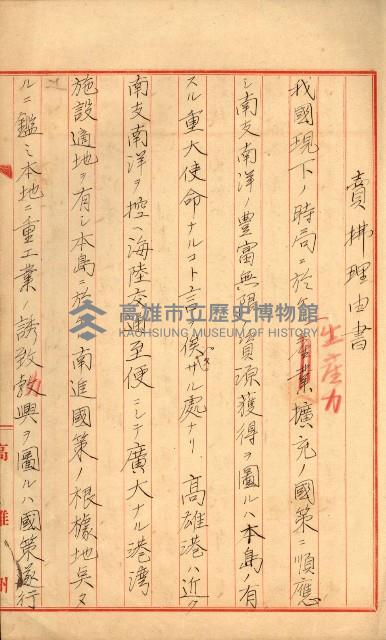 賣拂理由書
我國現下ノ時局ニ於テ業擴充ノ國策ニ順應
生産力
シ南支南洋ノ豐富無限資源獲得ヲ圖ルハ本島ノ有
スル重大使命ナルコト言俟サル處ナリ、高雄港ハ近ク
南支南洋ヲ控ヘ海陸交通至便ニシテ廣大ナル港灣
施設適地ヲ有シ本島ニ於南進國策ノ根據地タ
ルニ鑑ミ本地ニ重工業ノ誘致興ヲ圖ルハ國策遂行
高雄州
高雄市立歷史博物館
KAOHSIUNG MUSEUM OF HISTORY